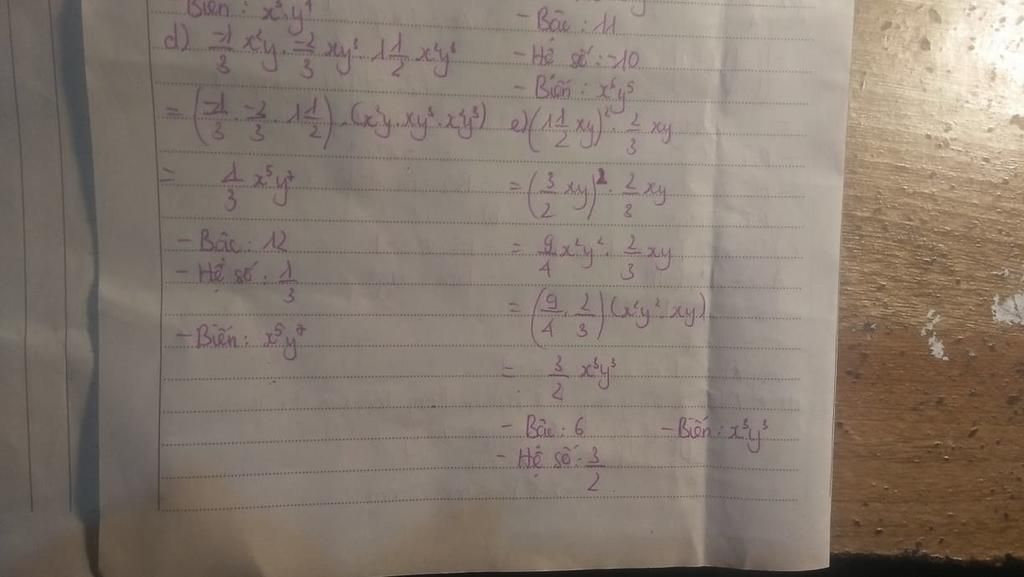 Biến: x³y⁹
d) -1/3 x²y · -2/3 xy³ · 1 1/2 x²y³
= (-1/3 · -2/3 · 1 1/2) · (x²y · xy³ · x²y³)
= 1/3 x⁵y⁷
- Bậc: 12
- Hệ số: 1/3
- Biến: x⁵y⁷
- Bậc: 11
- Hệ số: -10
- Biến: x⁶y⁵
e) (1 1/2 xy)² · 2/3 xy
= (3/2 xy)² · 2/3 xy
= 9/4 x²y² · 2/3 xy
= (9/4 · 2/3) (x²y² · xy)
= 3/2 x³y³
- Bậc: 6 - Biến: x³y³
- Hệ số: 3/2